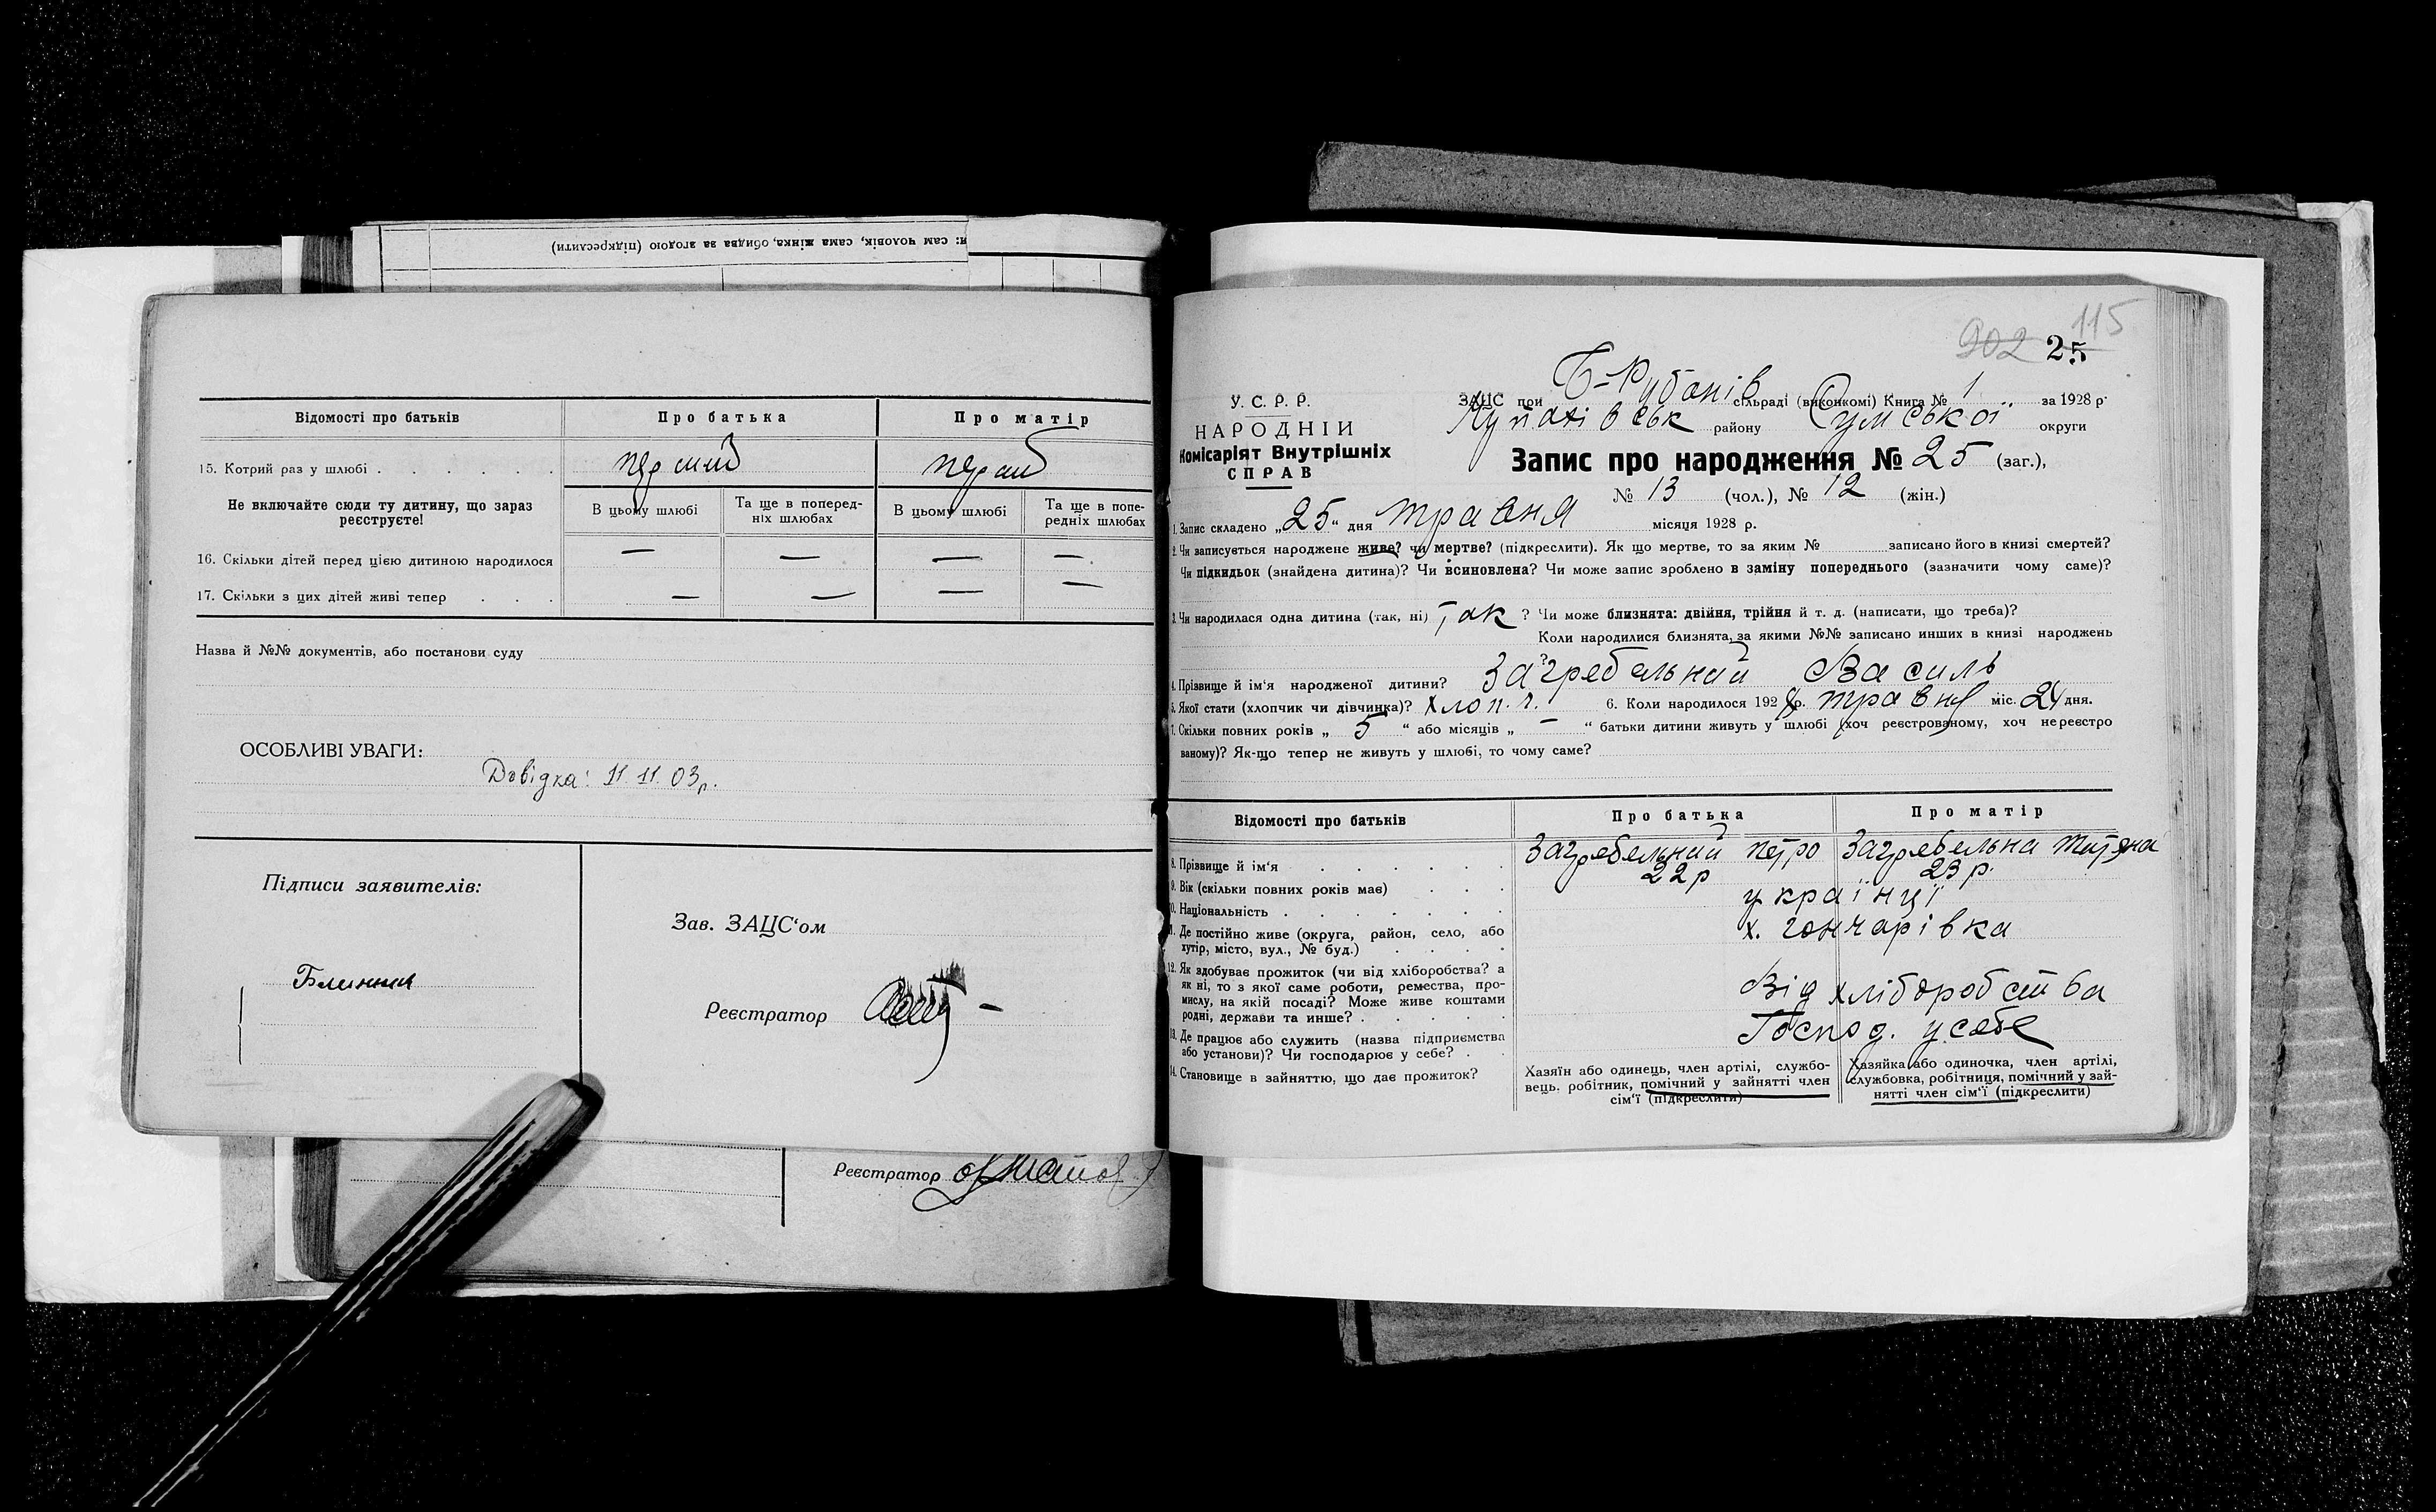 и: сам чоловік, сама жінка, обидва за згодою (підкреслити)
Відомості про батьків
Про батька
Про матір
15. Котрий раз у шлюбі
перший
Не включайте сюди ту дитину, що зараз реєструєте!
В цьому шлюбі
Та ще в поперед-
ніх шлюбах
В цьому шлюбі
Та ще в попе-
редніх шлюбах
16. Скільки дітей перед цією дитиною народилося
— — — —
17. Скільки з цих дітей живі тепер
— — — —
Назва й №№ документів, або постанови суду
ОСОБЛИВІ УВАГИ:
Довідка: 11.11.03р.
Підписи заявителів:
Зав. ЗАЦС‘ом
Реєстратор
Реєстратор
902 25 115
У. С. Р. Р.
НАРОДНІЙ
Комісаріят Внутрішніх
СПРАВ
ЗАЦС при Б-Рубанів сільраді (виконкомі) Книга № 1 за 1928 р.
району Сумської округи
Запис про народження № 25 (заг.),
№ 13 (чол.), № 12 (жін.)
1. Запис складено „25“ дня травня місяця 1928 р.
2. Чи записується народжене живе? чи мертве? (підкреслити). Як що мертве, то за яким № записано його в книзі смертей?
Чи підкидьок (знайдена дитина)? Чи всиновлена? Чи може запис зроблено в заміну попереднього (зазначити чому саме)?
3. Чи народилася одна дитина (так, ні) Так ? Чи може близнята: двійня, трійня й т. д. (написати, що треба)?
Коли народилися близнята, за якими №№ записано инших в книзі народжень
?
4. Прізвище й ім‘я народженої дитини? Загребельний Василь
5. Якої стати (хлопчик чи дівчинка)? хлоп.ч. 6. Коли народилося 1928р. травня міс. 24 дня.
7. Скільки повних років „ 5 “ або місяців „ — “ батьки дитини живуть у шлюбі (хоч реєстрованому, хоч нереєстро
ваному)? Як-що тепер не живуть у шлюбі, то чому саме?
Відомості про батьків
Про батька
Про матір
8. Прізвище й ім‘я
Загребельний Петро
Загребельна Титяна
9. Вік (скільки повних років має)
22р
23 р.
10. Національність
українці
11. Де постійно живе (округа, район, село, або
хутір, місто, вул., № буд.)
х. Гончарівка
12. Як здобуває прожиток (чи від хліборобства? а
як ні, то з якої саме роботи, ремества, про-
мислу, на якій посаді? Може живе коштами
родні, держави та инше?
Від хліборобства
13. Де працює або служить (назва підприємства
або установи)? Чи господарює у себе?
Господ. у себе
14. Становище в зайняттю, що дає прожиток?
Хазяїн або одинець, член артілі, службо-
вець, робітник, помічний у зайнятті член
сім‘ї (підкреслити)
Хазяйка або одиночка, член артілі,
службовка, робітниця, помічний у зай-
нятті член сім‘ї (підкреслити)